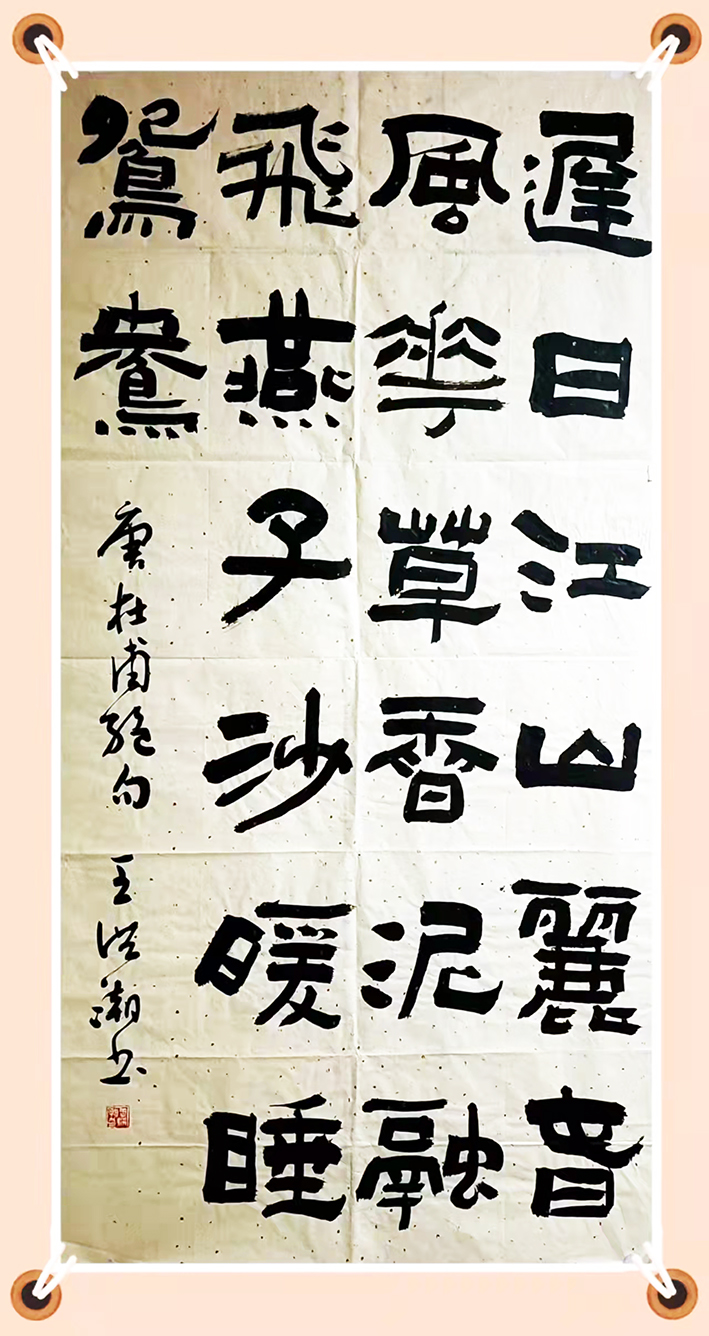 遲日江山麗春
風華草香泥融
飛燕子沙暖睡
鴛鴦
唐杜甫絕句 王洪書